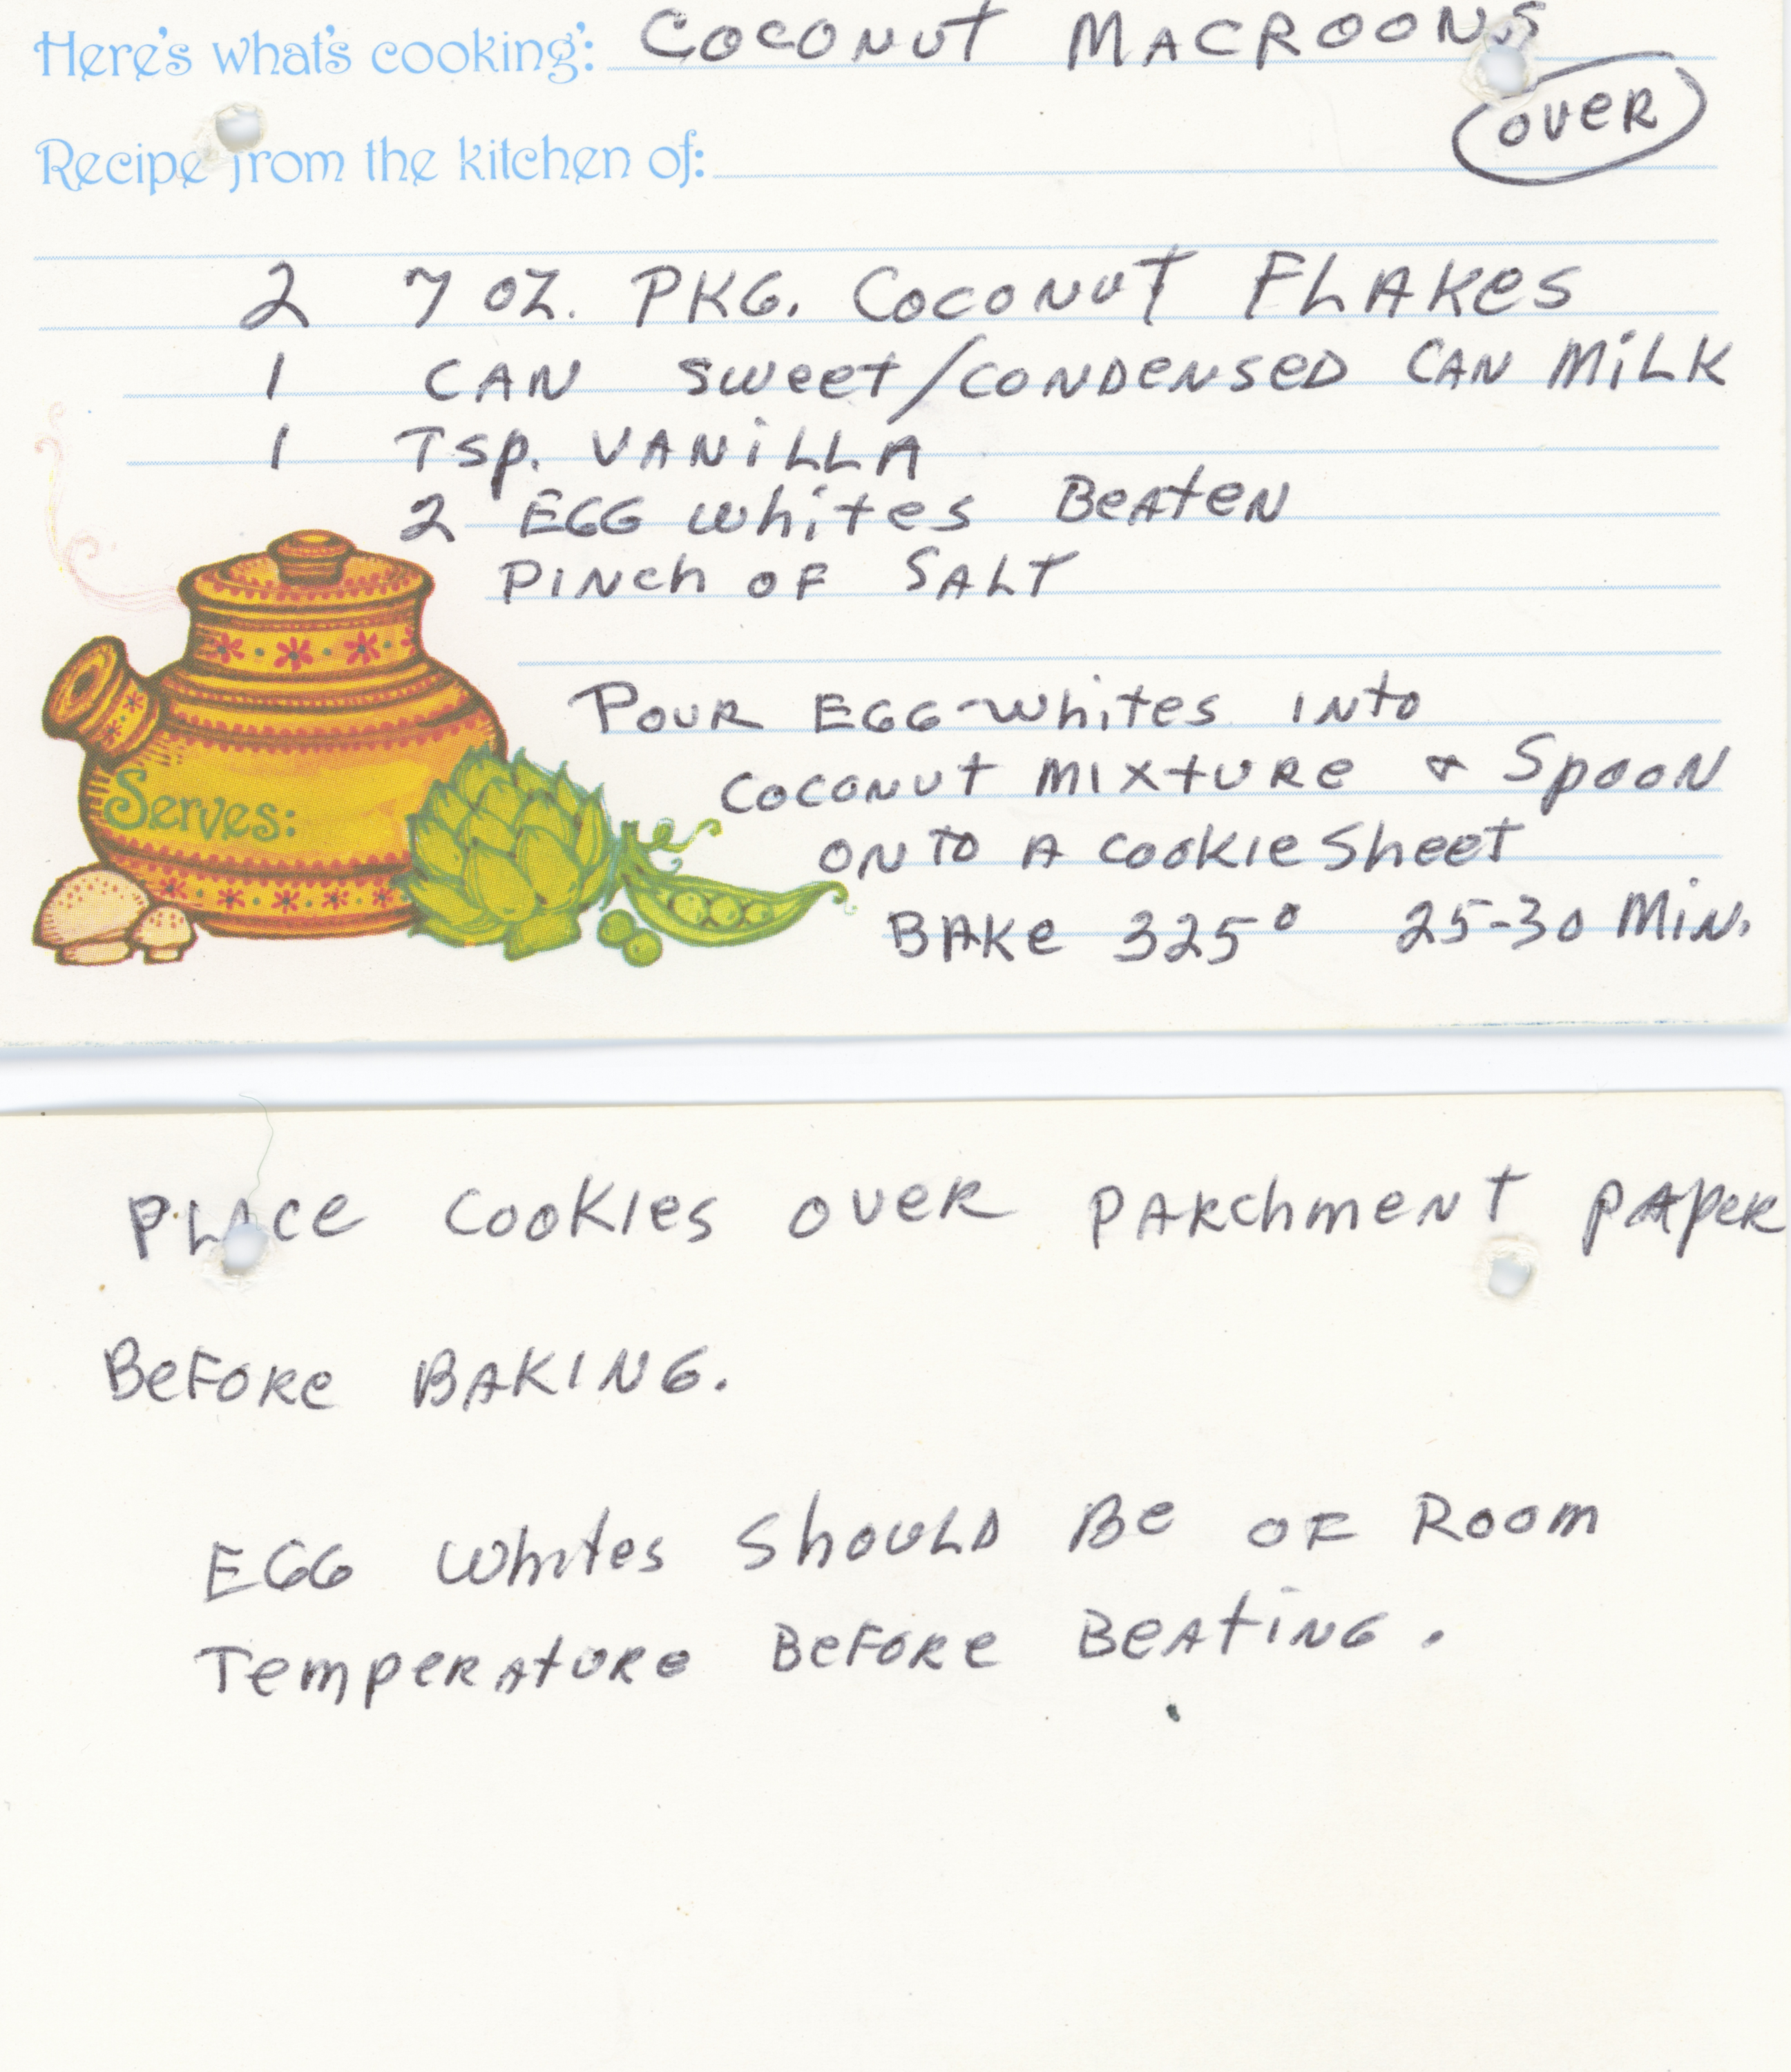 Here's what's cooking: COCONUT MACROONS
OVER
Recipe from the kitchen of:
2 7 OZ. PKG. COCONUT FLAKES
1 CAN sweet/CONDENSED CAN MiLK
1 Tsp. VANiLLA
2 EGG whites BEATEN
PINCh OF SALT
POUR EGG-whites INTO
COCONUT MIXTURE & SPOON
ONTO A COOKIE Sheet
BAKE 325° 25-30 MiN.
Serves:
PLACE COOKIES OVER PARChMENT PAPER
BEFORE BAKING.
EGG Whites ShOULD BE OF ROOM
TEMPERATURE BEFORE BEATING.